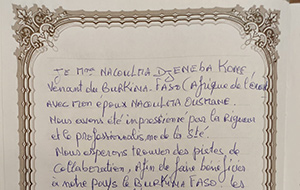 Je Mme NACOULMA DJENEBA KONE
Venant du BURKINA-FASO (Afrique de l'Ouest
avec mon époux NACOULMA OUSMANE.
Nous avons été impressionné par la Rigueur
et le professionalisme de la Sté.
Nous esperons trouver des pistes de
Collaboration, Afin de faire bénéficier
à notre pays le BURKINA FASO es